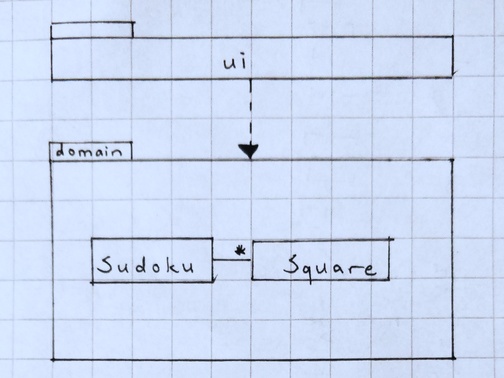 ui
domain
Sudoku * Square